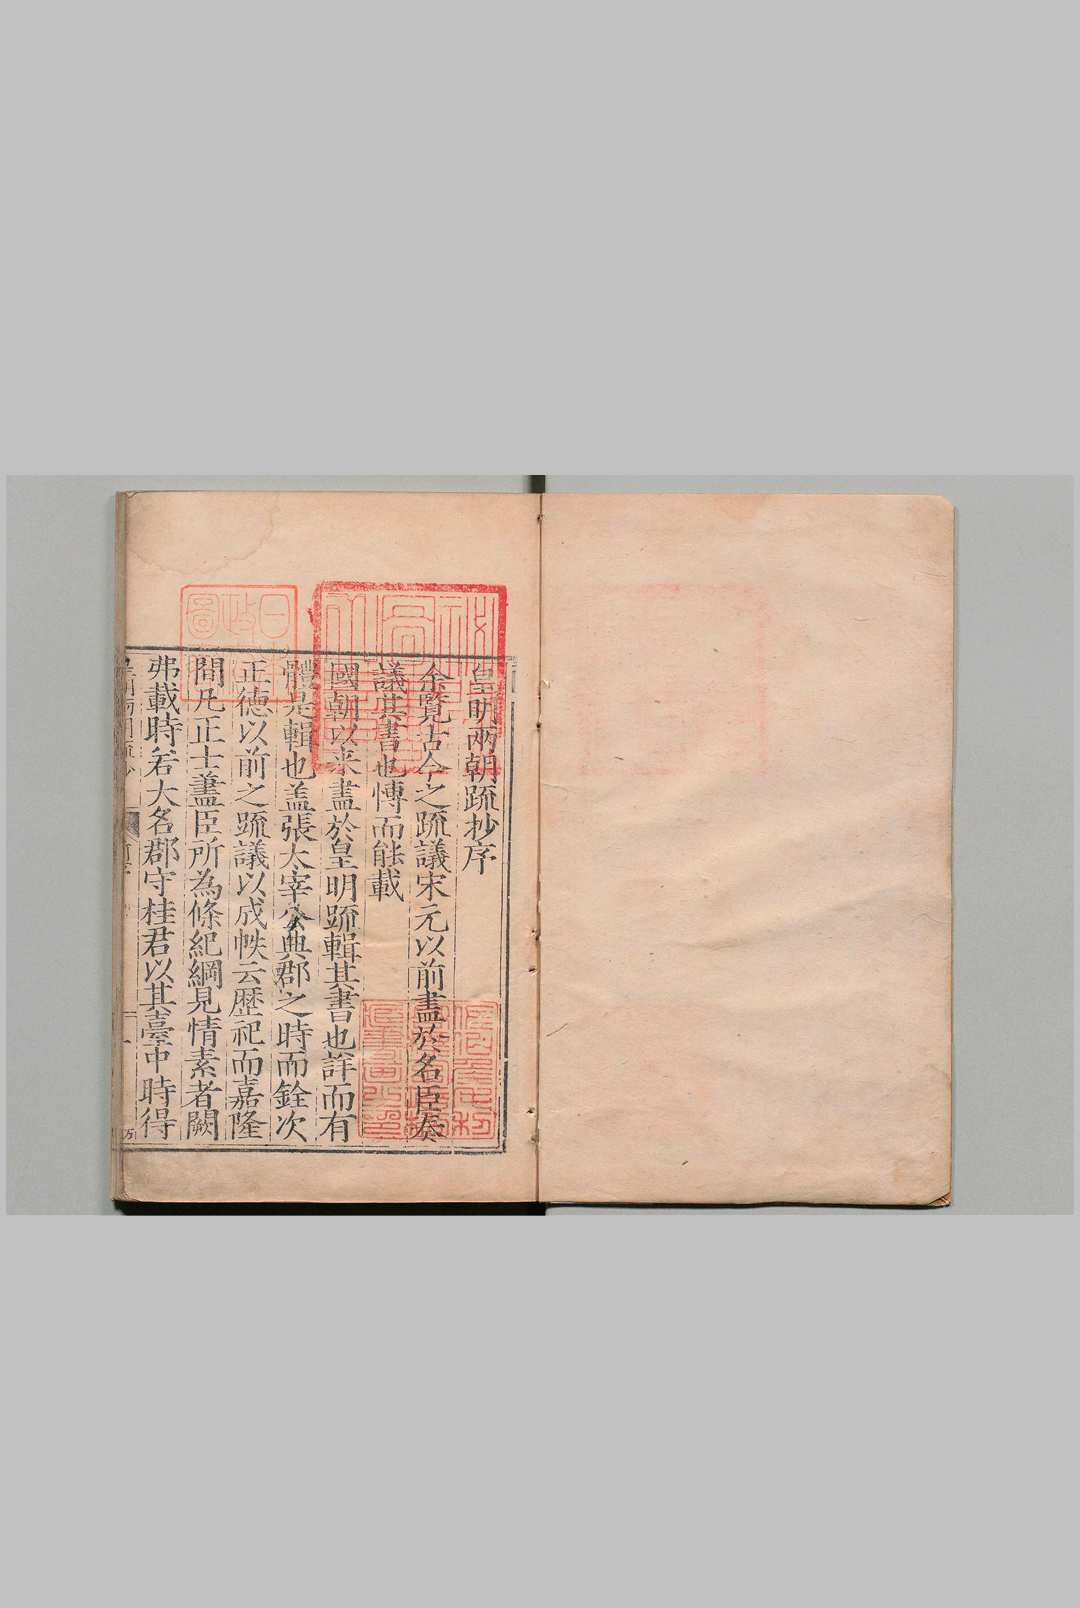 皇明兩朝疏抄序
余覽古今之疏議宋元以前盡於名臣奏
議其書也博而能載
國朝以来盡於皇明疏輯其書也詳而有
體是輯也盖張太宰公典郡之時而銓次
正德以前之疏議以成帙云歷祀而嘉隆
間凡正士藎臣所為條紀綱見情素者闕
弗載時若大名郡守桂君以其臺中時得